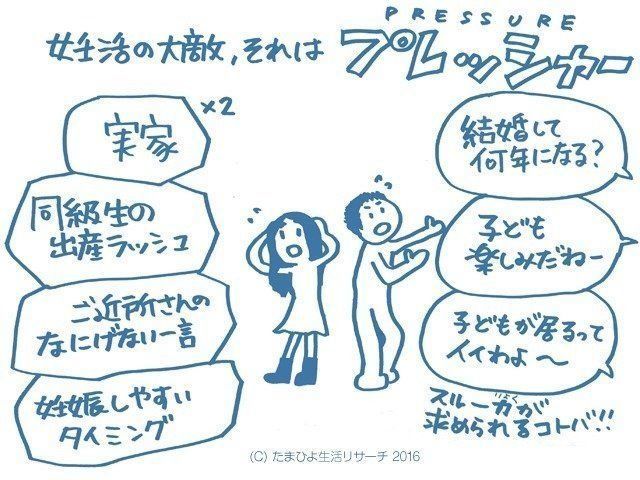 PRESSURE
妊活の大敵,それは プレッシャー
実家 ×2
同級生の
出産ラッシュ
ご近所さんの
なにげない一言
妊娠しやすい
タイミング
結婚して
何年になる?
子ども
楽しみだねー
子どもが居るって
イイわよ〜
スルー力が
求められるコトバ!!
(C) たまひよ生活リサーチ 2016